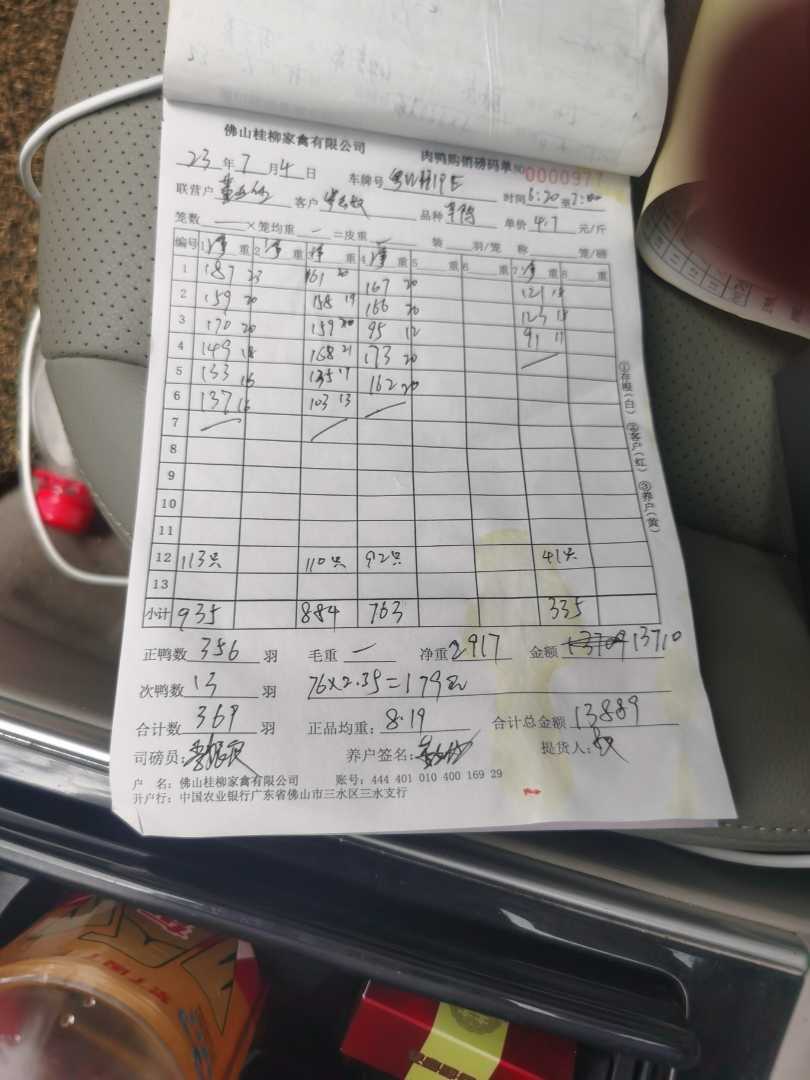 佛山桂柳家禽有限公司 肉鸭购销磅码单 NO 0000977
23年7月4日 车牌号 时间6:20至7:00
联营户 客户 品种 单价4.7元/斤
笼数 ×笼均重 — =皮重 — 装 羽/笼 称 笼/磅
编号 1净重 2净重 3净重 4净重 5 重 6 重 7净重 8 重
1 187 23 161 20 167 20 121 18
2 159 20 158 19 166 20 123
3 170 20 159 20 95 12 91 11
4 149 18 168 21 173 20
5 133 16 135 17 162 20
6 137 16 103 13
7
8
9
10
11
12 113只 110只 92只 41只
13
小计 935 884 763 335
正鸭数 356 羽 毛重 — 净重 2917 金额 13709 13710
次鸭数 13 羽 76×2.35=179元
合计数 369 羽 正品均重: 8.19 合计总金额 13889
司磅员: 养户签名: 提货人:
户 名: 佛山桂柳家禽有限公司 账号: 444 401 010 400 169 29
开户行: 中国农业银行广东省佛山市三水区三水支行
①存根(白) ②客户(红) ③养户(黄)